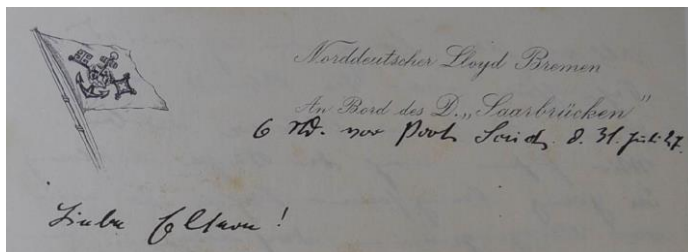 Norddeutscher Lloyd Bremen
An Bord des D. „Saarbrücken"
6 Std. vor Port Said. d. 31. Juli 27.
Liebe Eltern!